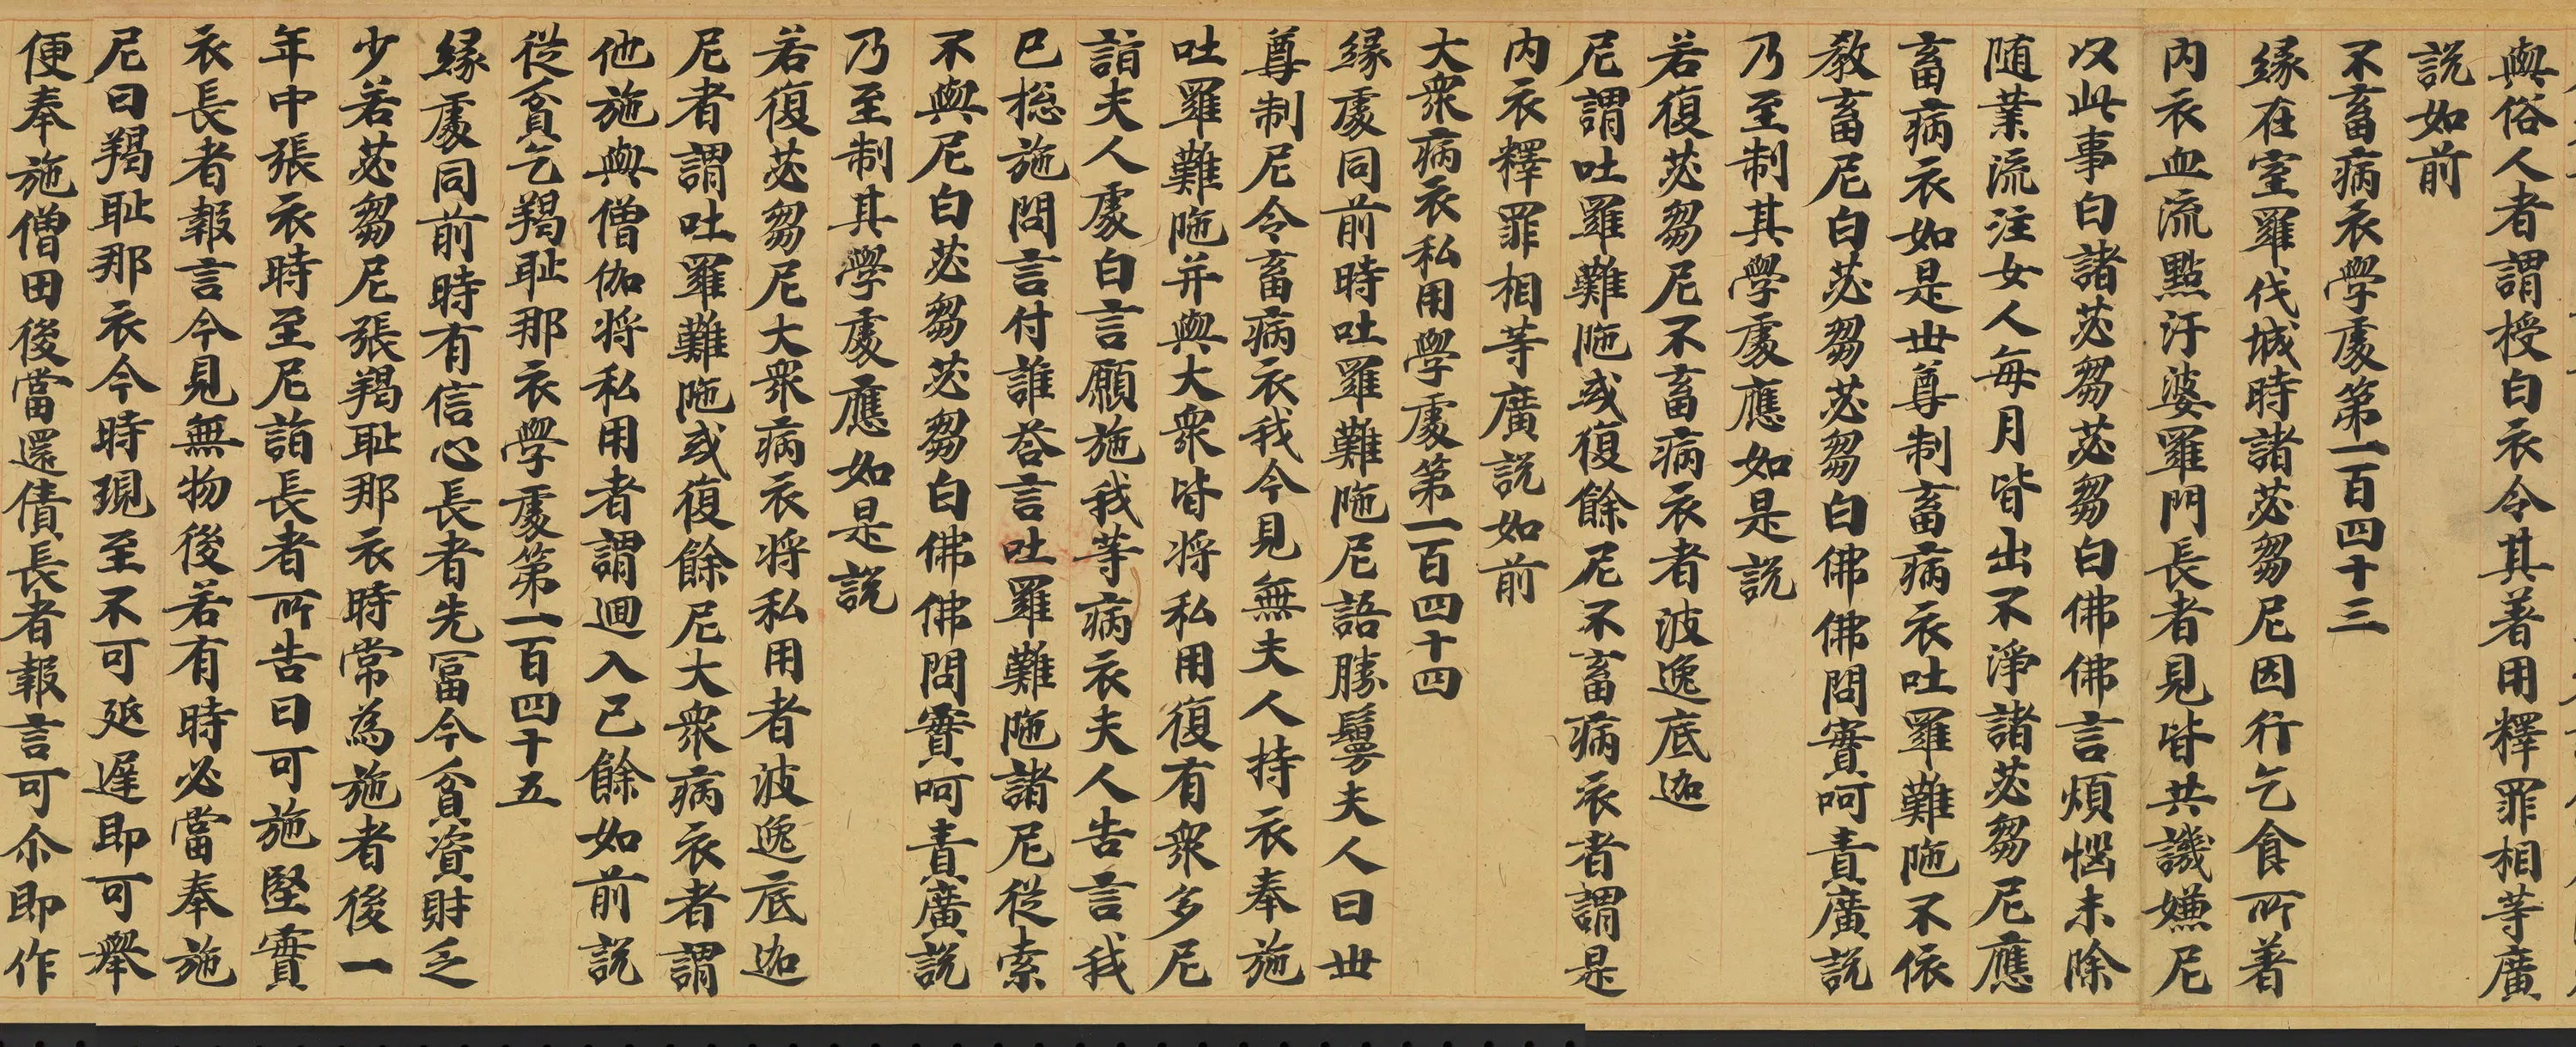 與俗人者謂授白衣令其著用釋罪相等廣
說如前
不畜病衣學處第一百四十三
緣在室羅伐城時諸苾芻尼因行乞食所著
內衣血流點汙婆羅門長者見皆共譏嫌尼
以此事白諸苾芻苾芻白佛佛言煩惱未除
随業流注女人每月皆出不淨諸苾芻尼應
畜病衣如是世尊制畜病衣吐羅難陁不依
教畜尼白苾芻苾芻白佛佛問實呵責廣說
乃至制其學處應如是說
若復苾芻尼不畜病衣者波逸底迦
尼謂吐羅難陁或復餘尼不畜病衣者謂是
內衣釋罪相等廣說如前
大衆病衣私用學處第一百四十四
緣處同前時吐羅難陁尼語勝鬘夫人曰世
尊制尼令畜病衣我今見無夫人持衣奉施
吐羅難陁并與大衆皆将私用復有衆多尼
詣夫人處白言願施我等病衣夫人告言我
已捴施問言付誰荅言吐羅難陁諸尼從索
不與尼白苾芻苾芻白佛佛問實呵責廣說
乃至制其學處應如是說
若復苾芻尼大衆病衣将私用者波逸底迦
尼者謂吐羅難陁或復餘尼大衆病衣者謂
他施與僧伽将私用者謂迴入己餘如前說
從貧乞羯耻那衣學處第一百四十五
緣處同前時有信心長者先冨今貧資財乏
少若苾芻尼張羯耻那衣時常為施者後一
年中張衣時至尼詣長者所告曰可施堅實
衣長者報言今見無物後若有時必當奉施
尼曰羯耻那衣今時現至不可延遅即可舉
便奉施僧田後當還債長者報言可尒即作